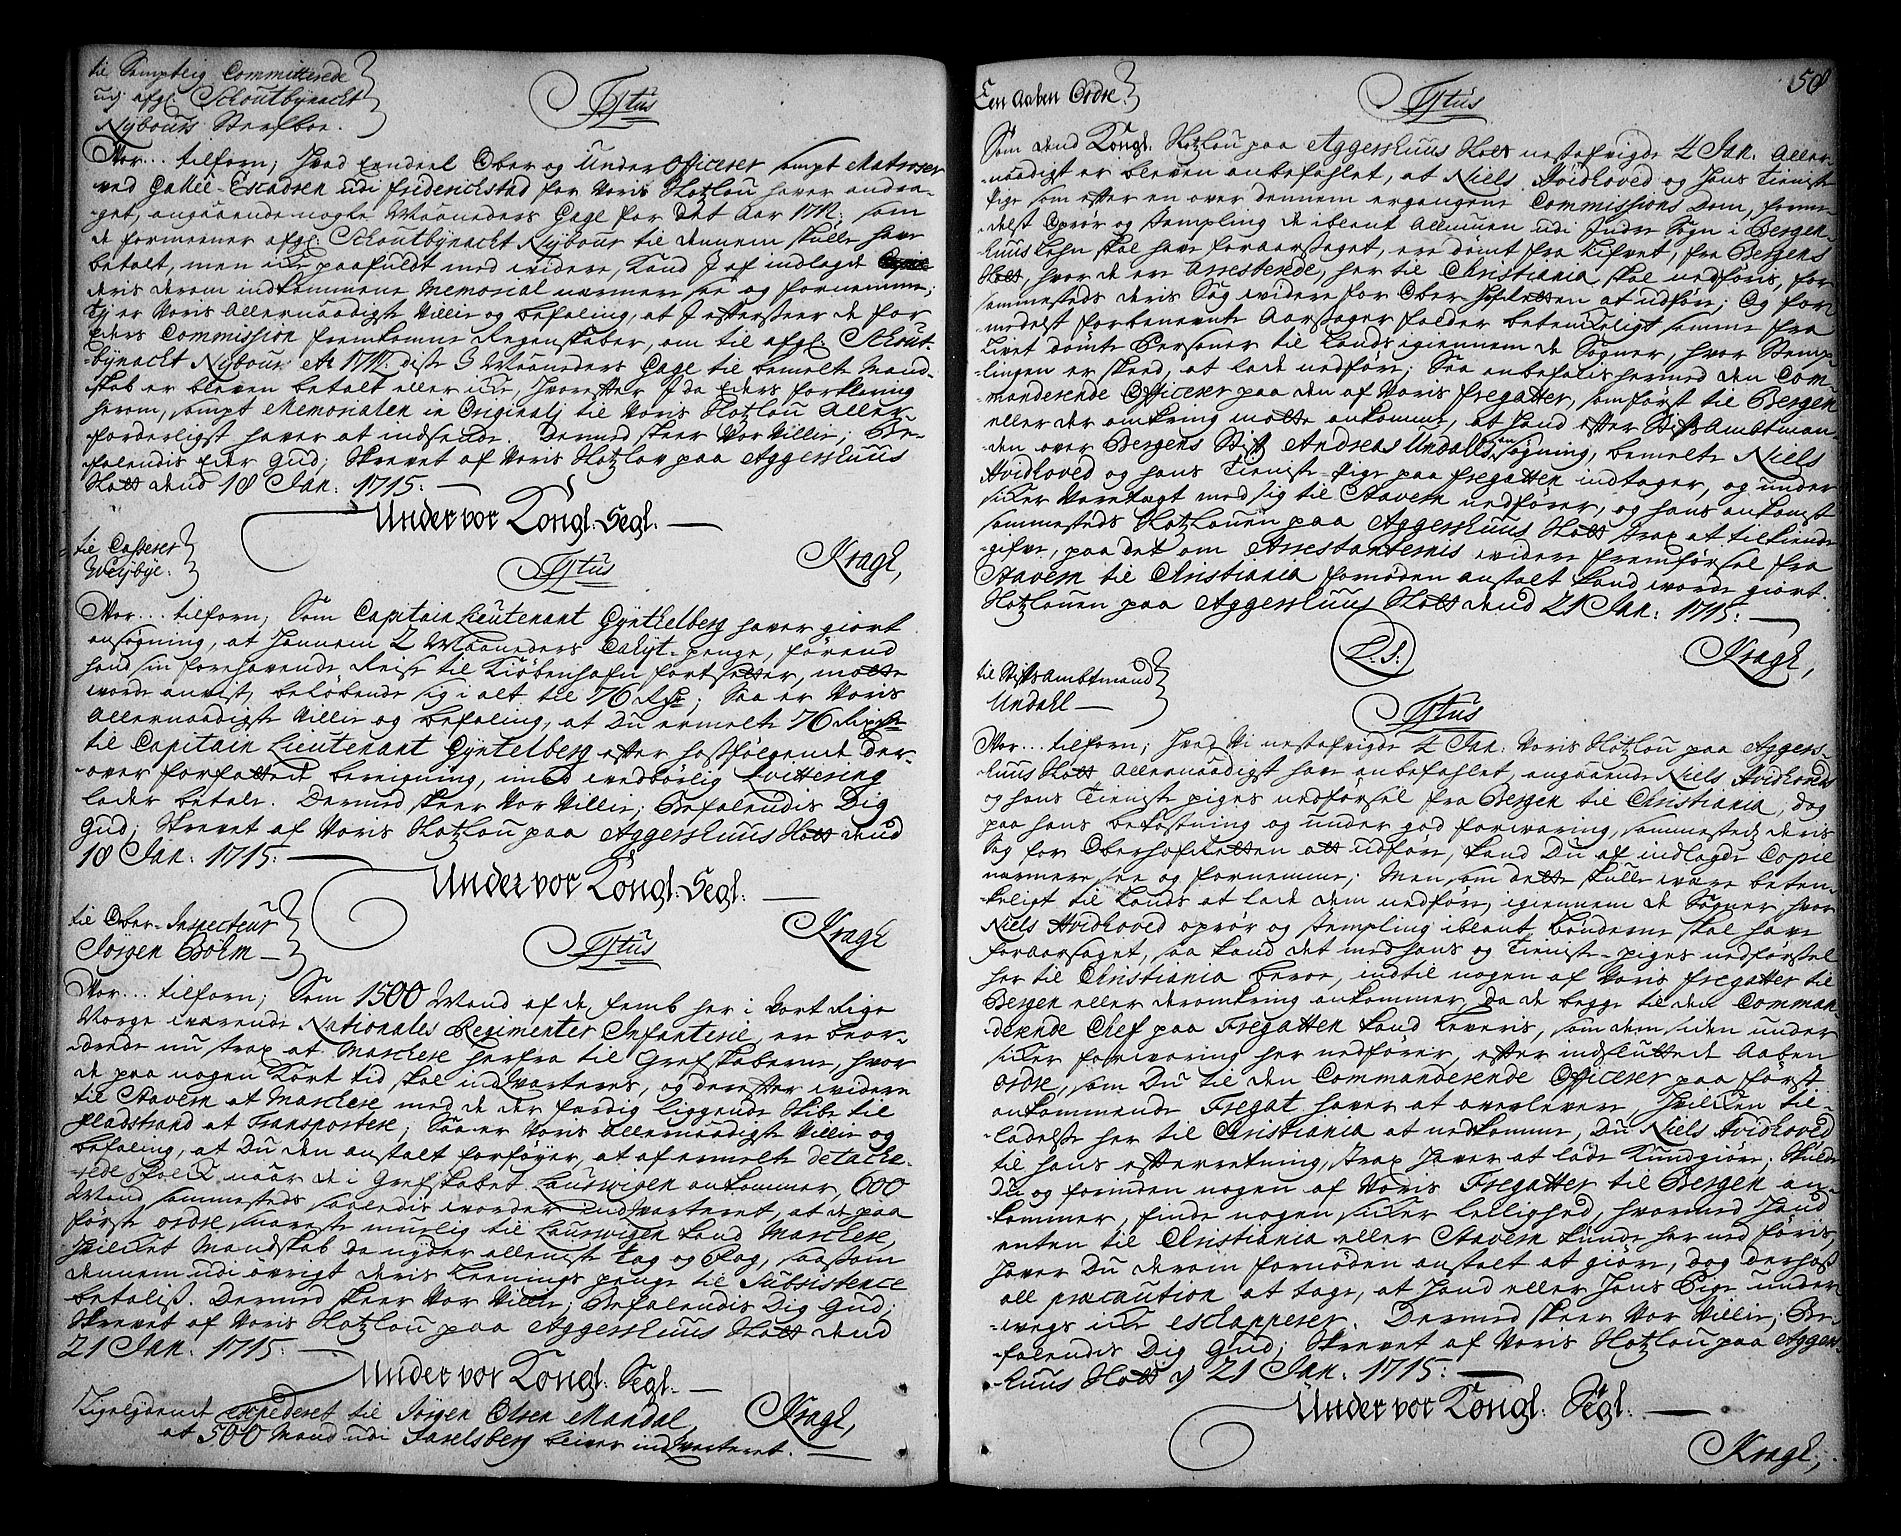 til Samptlig Committerede
udj afg: Schoutbynacht
Nybours Sterfboe.
Tjtus
Vor... tilforn; Hvad Eendeel Ober og Under Officerer sampt Matroser
ved Gallie-Escadren udi Friderichstad for Voris Slotzlou haver andra-
get, angaaende nogle Maaneders Gage for det aar 1712: som
de formeener afg: Schoutbynacht Nybour til dennem skulle have
betalt, men icke paafuldt med videre, Kand I af indlagde
deris derom indkommene Memorial nærmere see og fornemme;
Ty er Voris Allernaadigste Villie og befaling, at I efterseer de for
Eders Commission fremkomne Regenskaber, om til afg: Schout-
-bynacht Nybour ete 1712: disse 3 Maaneders Gage til bemelte Mand-
skab er bleven betalt eller icke, hvorefter I da Eders forklaring
herom, sampt Memorialen in Originalj til Voris Slotzlou Aller-
forderligst haver at indsende. Dermed skeer Vor Villie; Be-
falendis Eder Gud; Skrevet af Voris Slotzlov paa Aggershuus
Slott dend 18 Jan: 1715:
Under vor Kongl. Segl.
Kragh,
til Casserer
Weÿbÿe.
Tjtus
Vor... tilforn; Som Capitain Lieutenant Gyntelberg haver giort
ansøgning, at hannem 2 Maaneders Calyt-penge,førend
hand sin forehavende Reise til Kiøbenhafn fortsetter, motte
worde anvist, beløbende sig i alt til 76 Rdr; Saa er Voris
Allernaadigste Villie og befaling, at Du ermelte 76 Rixdr
til Capitain Lieutenant Gyntelberg efter hosfølgende der-
-over forfattede bereigning, imod vedbørlig Qvittering
lader betale. Dermed skeer Vor Villie; Befalendis Dig
Gud; Skrevet af Voris Slotzlou paa Aggershuus Slott dend
18 Jan: 1715:
Under vor Kongl. Segl.
Kragh
til Ober-Inspecteur
Jørgen Bøhm
Tjtus
Vor... tilforn; Som 1500 Mand af de femb her i Vort Rige
Norge værende Nationales Regimenter Infanterie, er beor-
-drede nu strax at Marchere herfra til Grefskaberne, hvor
de paa nogen Kort tid skal indqvarteres, og derefter videre
til Stavern at Marchere med de der færdig liggende Skibe til
fladstrand at Transportere; Saa er Voris Allernaadigste Villie og
befaling, at Du den anstalt forføyer, at af ermelte detache-
-rede folck naar de i Grefskabet Laurwigen ankommer, 600
Mand sammesteds saaledis vorder indqvarteret, at de paa
første ordre, snareste muelig til Laurwigen kand Marchere,
hvilcket Mandskab da nyder alleniste tag og fag, saasom
dennem udi øvrigt deris Leenings penge til Subsistence
betalis. Dermed skeer Vor Villie; Befalendis Dig Gud;
Skrevet af Voris Slotzlou paa Aggershuus Slott dend
21 Jan: 1715:
Under vor Kongl. Segl.
Kragh,
Ligelydende expederet til Jørgen Olsen Mandal,
at 500 Mand udi Jarelsberg bliver indqvarteret.
50
Een Aaben Ordre.
Tjtus
Som dend Kongl. Slotzlou paa Aggershuus Slott nestafvigte 4 Jan. Aller-
naadigst er bleven anbefahlet, at Niels Hvidhoved og hans Tieniste
Pige som efter en over dennem ergangene Commissions Dom, forme-
delst Oprør og stempling de iblant Allmuen udi Indre Sogn i Bergen-
huus Lehn skal have foraarsaget, ere dømt fra Lifvet, fra Bergens
Slott, hvor de ere Arresterede, her til Christiania skal nedføris, for
sammesteds deris Sag videre for Ober-Hofretten at udføre; Og for-
medelst forbenevnte Aarsager falder betenckeligt samme fra
Livet dømte Personer til Lands igiennem de Sogner, hvor Stemp-
lingen er skeed, at lade nedføre; Saa anbefalis hermed den Com-
manderende Officerer paa den af Voris fregatter, som først til Bergen
eller der omkring motte ankomme, at hand efter Stifts Ambtman-
den over Bergens Stift Andreas Undalls søgning, bemelte Niels
Hvidhoved og hans Tieniste-Pige paa fregatten indtager, og under
sicker Varetægt med sig til Stavern nedfører, og hans ankomst
sammesteds Slotzlouen paa Aggershuus Slott strax at tilkiende
-gifve, paa det om Arrestanternis videre fremførsel fra
Stavern til Christiania fornøden anstalt kand worde giort.
Slotzlouen paa Aggershuus Slott dend 21 Jan: 1715:
L. S:
Kragh,
til Stifts Ambtmand
Undall
Tjtus
Vor... tilforn; Hvad Vi nestafvigte 4 Jan. Voris Slotzlou paa Aggers-
huus Slott Allernaadigst have anbefahlet, angaaende Niels Hvidhoveds
og hans Tieniste piges nedførsel fra Bergen til Christiania, dog
paa hans bekostning og under god forvaring, sammestedz deris
Sag for Oberhofretten att udføre, kand Du af indlagde Copie
nærmere see og fornemme; Men som dette skulle være beten-
keligt til Lands at lade dem nedføre, igiennem de Sogner hvor
Niels Hvidhoved oprør og stempling iblant bønderne skal have
foraarsaget, saa kand det med hans og Tieniste-piges nedførsel
her til Christiania beroe, indtil nogen af Voris fregatter til
Bergen eller deromkring ankommer, da de begge til den Comman-
derende Chef paa Fregatten kand Leveris, som dem siden under
sicker forvaring her nedfører, efter indsluttede Aaben
ordre, som Du til den Commanderende Officerer paa først
ankommende Fregat haver at overlevere, hvilcken til-
-ladelse her til Christiania at nedkomme, Du Niels Hvidhoved
til hans efterretning, strax haver at lade kundgiøre; Skulde
Du og forinden nogen af Voris Fregatter til Bergen an-
-kommer, finde nogen sicker leilighed, hvormed hand
enten til Christiania eller Stavern kunde her ned føris,
haver Du derom fornøden anstalt at giøre, dog derhos
all præcaution at tage, at hand eller hans Pige under-
-wegs icke eschapperer. Dermed skeer Vor Villie; Be-
-falendis Dig Gud; Skrevet af Voris Slotzlou paa Agger-
-huus Slott dj 21 Jan: 1715:
Under vor Kongl. Segl.
Kragh,